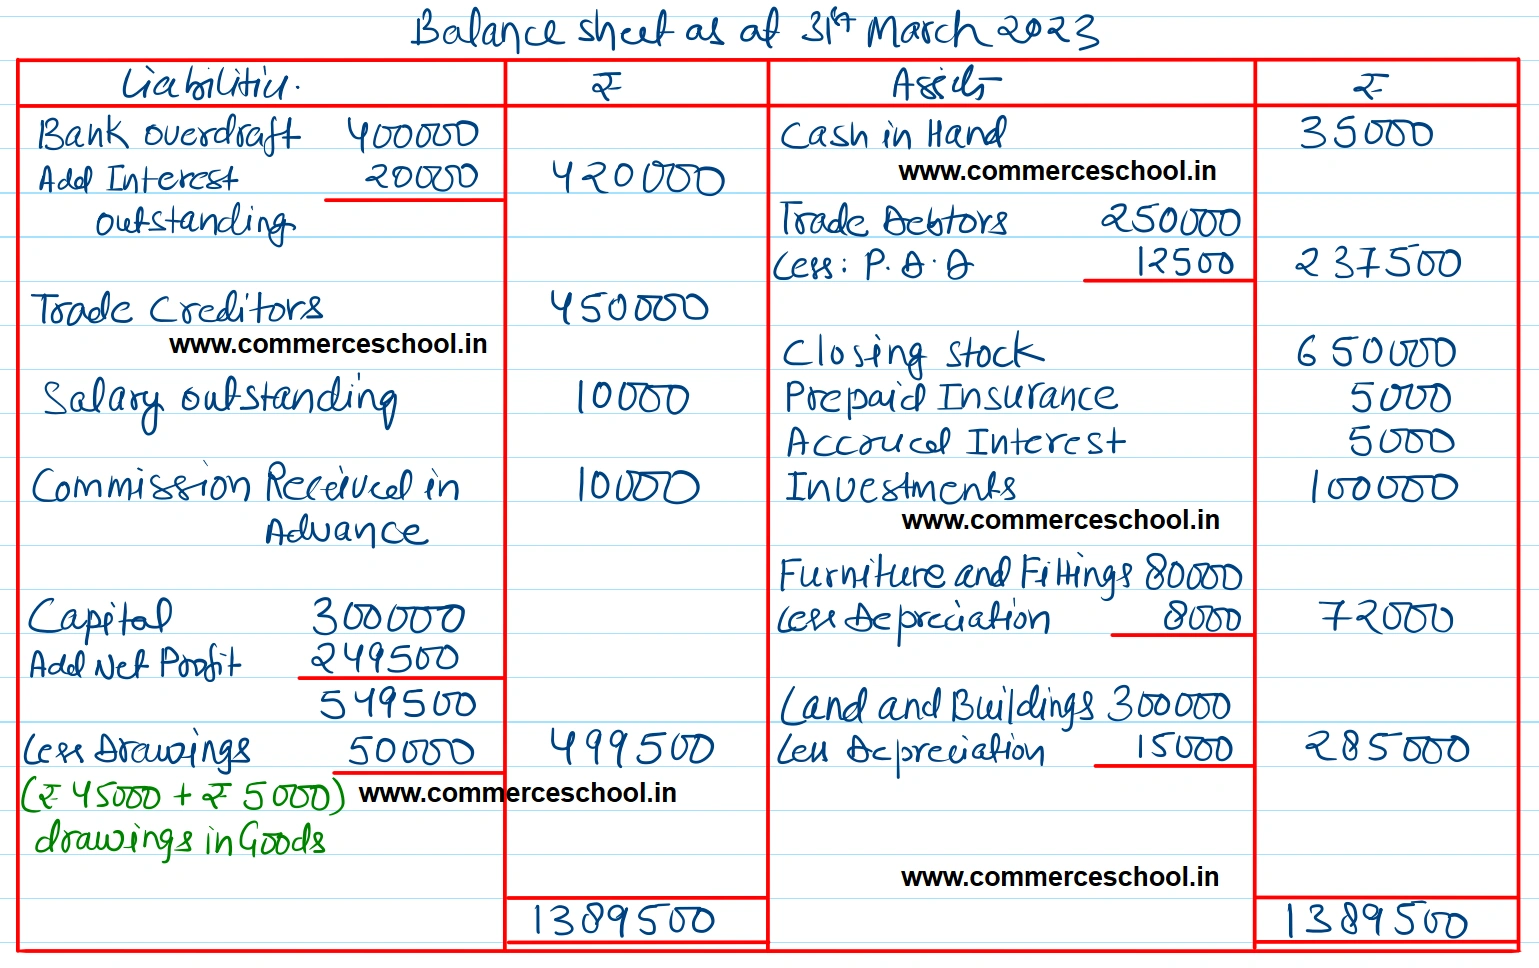 Balance sheet as at 31st March 2023
Liabilities. ₹ Assets ₹
Bank overdraft 400000 Cash in Hand 35000
Add Interest 20000 420000 www.commerceschool.in
outstanding Trade Debtors 250000
Less: P.D.D 12500 237500
Trade Creditors 450000
www.commerceschool.in Closing stock 650000
Salary outstanding 10000 Prepaid Insurance 5000
Accrued Interest 5000
Commission Received in 10000 Investments 100000
Advance www.commerceschool.in
Furniture and Fittings 80000
Capital 300000 Less Depreciation 8000 72000
Add Net Profit 249500
549500 Land and Buildings 300000
Less Drawings 50000 499500 Less Depreciation 15000 285000
(₹ 45000 + ₹ 5000) www.commerceschool.in
drawings in Goods
www.commerceschool.in
1389500 1389500